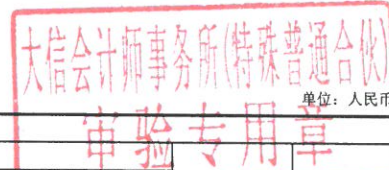 大信会计师事务所(特殊普通合伙)
单位：人民币
审验专用章